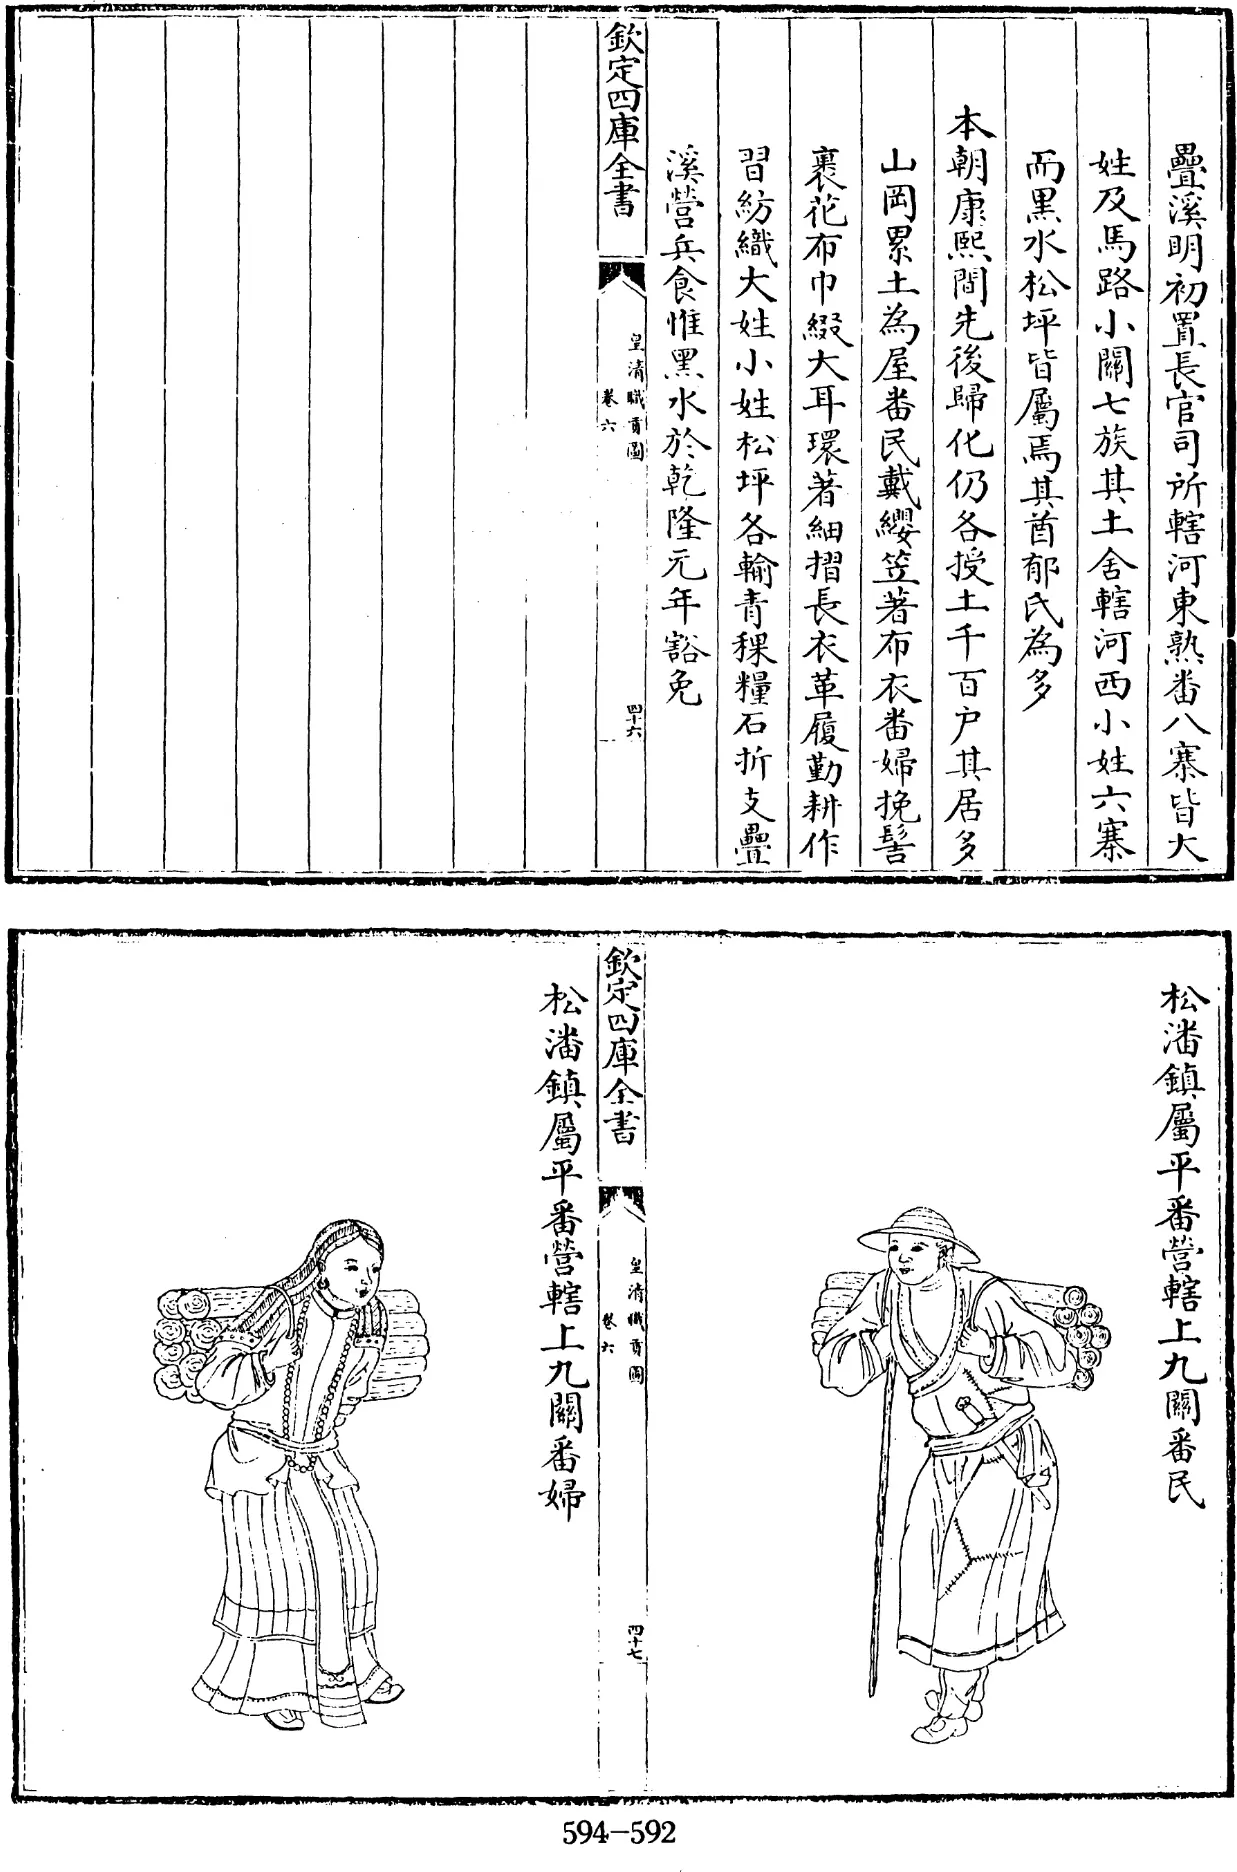 疊溪明初置長官司所轄河東熟番八寨皆大
姓及馬路小關七族其土舍轄河西小姓六寨
而黒水松坪皆屬焉其酋郁氏為多
本朝康熙間先後歸化仍各授土千百户其居多
山岡累土為屋番民戴纓笠著布衣番婦挽髻
裹花布巾綴大耳環著細摺長衣革履勤耕作
習紡織大姓小姓松坪各輸青稞糧石折支疊
溪營兵食惟黒水於乾隆元年豁免
欽定四庫全書
皇清職貢圖
卷六
四十六
松潘鎮屬平番營轄上九關番民
欽定四庫全書
皇清職貢圖
卷六
四十七
松潘鎮屬平番營轄上九關番婦
594-592